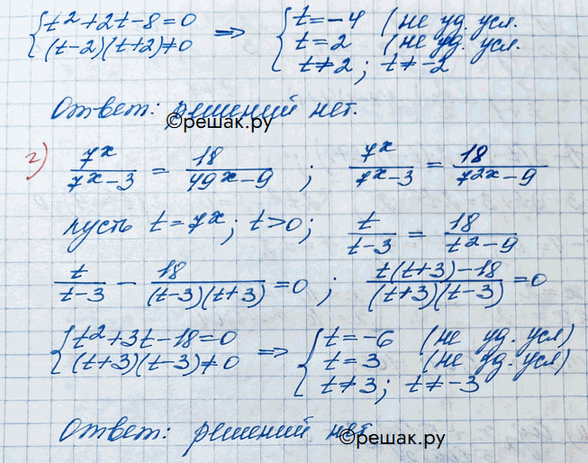 { t² + 2t - 8 = 0 => { t = -4 (не уд. усл.
(t-2)(t+2) ≠ 0 t = 2 (не уд. усл.
t ≠ 2 ; t ≠ -2
Ответ: решений нет.
©решак.ру
г) 7ˣ/(7ˣ - 3) = 18/(49ˣ - 9) ; 7ˣ/(7ˣ - 3) = 18/(7²ˣ - 9)
пусть t = 7ˣ ; t > 0 ; t/(t - 3) = 18/(t² - 9)
t/(t - 3) - 18/((t-3)(t+3)) = 0 ; (t(t+3) - 18)/((t+3)(t-3)) = 0
{ t² + 3t - 18 = 0 => { t = -6 (не уд. усл)
(t+3)(t-3) ≠ 0 t = 3 (не уд. усл)
t ≠ 3 ; t ≠ -3
Ответ: решений нет
©решак.ру